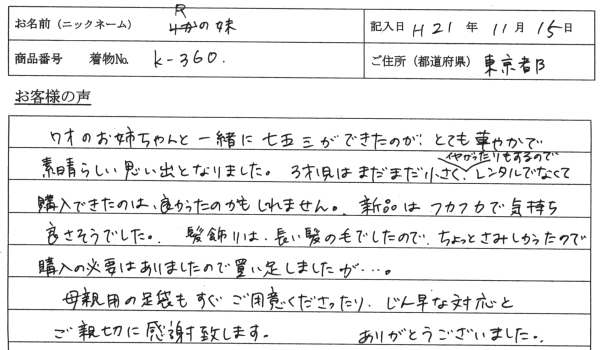 お名前(ニックネーム) Rかの妹 記入日 H21年11月15日
商品番号 着物No. K-360. ご住所(都道府県) 東京都
お客様の声
7才のお姉ちゃんと一緒に七五三ができたのが、とても華やかで
素晴らしい思い出となりました。3才児はまだまだ小さく、イヤがったりもするのでレンタルでなくて
購入できたのは、良かったのかもしれません。新品はフカフカで気持ち
良さそうでした。髪飾りは、長い髪の毛でしたので、ちょっとさみしかったので
購入の必要はありましたので買い足しましたが…。
母親用の足袋もすぐご用意くださったり、じん早な対応と
ご親切に感謝致します。ありがとうございました。